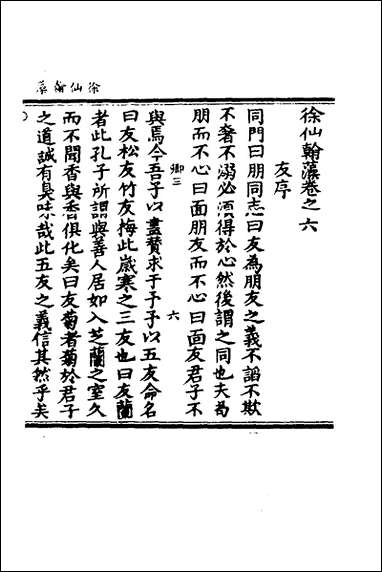 徐仙翰藻
徐仙翰藻卷之六
友序
同門曰朋同志曰友為朋友之義不謟不欺
不奢不溺必須得於心然後謂之同也夫苟
朋而不心曰面朋友而不心曰面友君子不
卿三
六
與焉今吾子以畫贊求于予予以五友命名
曰友松友竹友梅此嵗寒之三友也曰友蘭
者此孔子所謂與善人居如入芝蘭之室久
而不聞香與香俱化矣曰友菊者菊於君子
之道誠有臭味哉此五友之義信其然乎矣